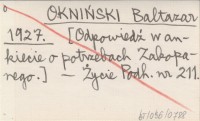 OKNIŃSKI Baltazar
1927. [Odpowiedź w an-
kiecie o potrzebach Zakopa-
nego.] — Życie Podh. nr 211.